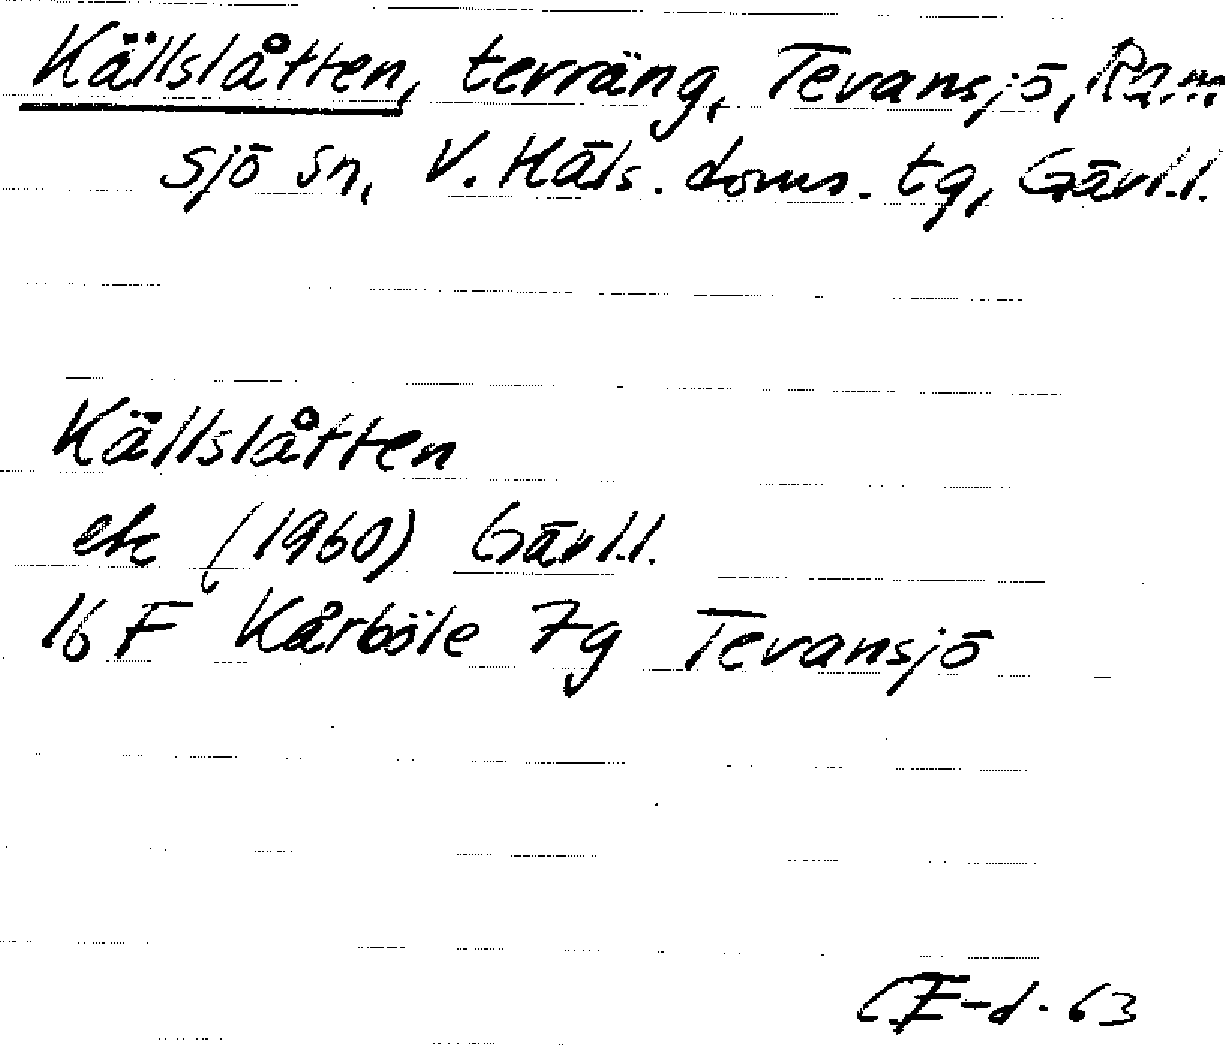 Källslåtten, terräng, Tevansjö, Ram
sjö sn, V. Häls. doms. tg, Gävl.l.
Källslåtten
ek (1960) Gävl.l.
16 F Kårböle 7g Tevansjö
CE-d. 63